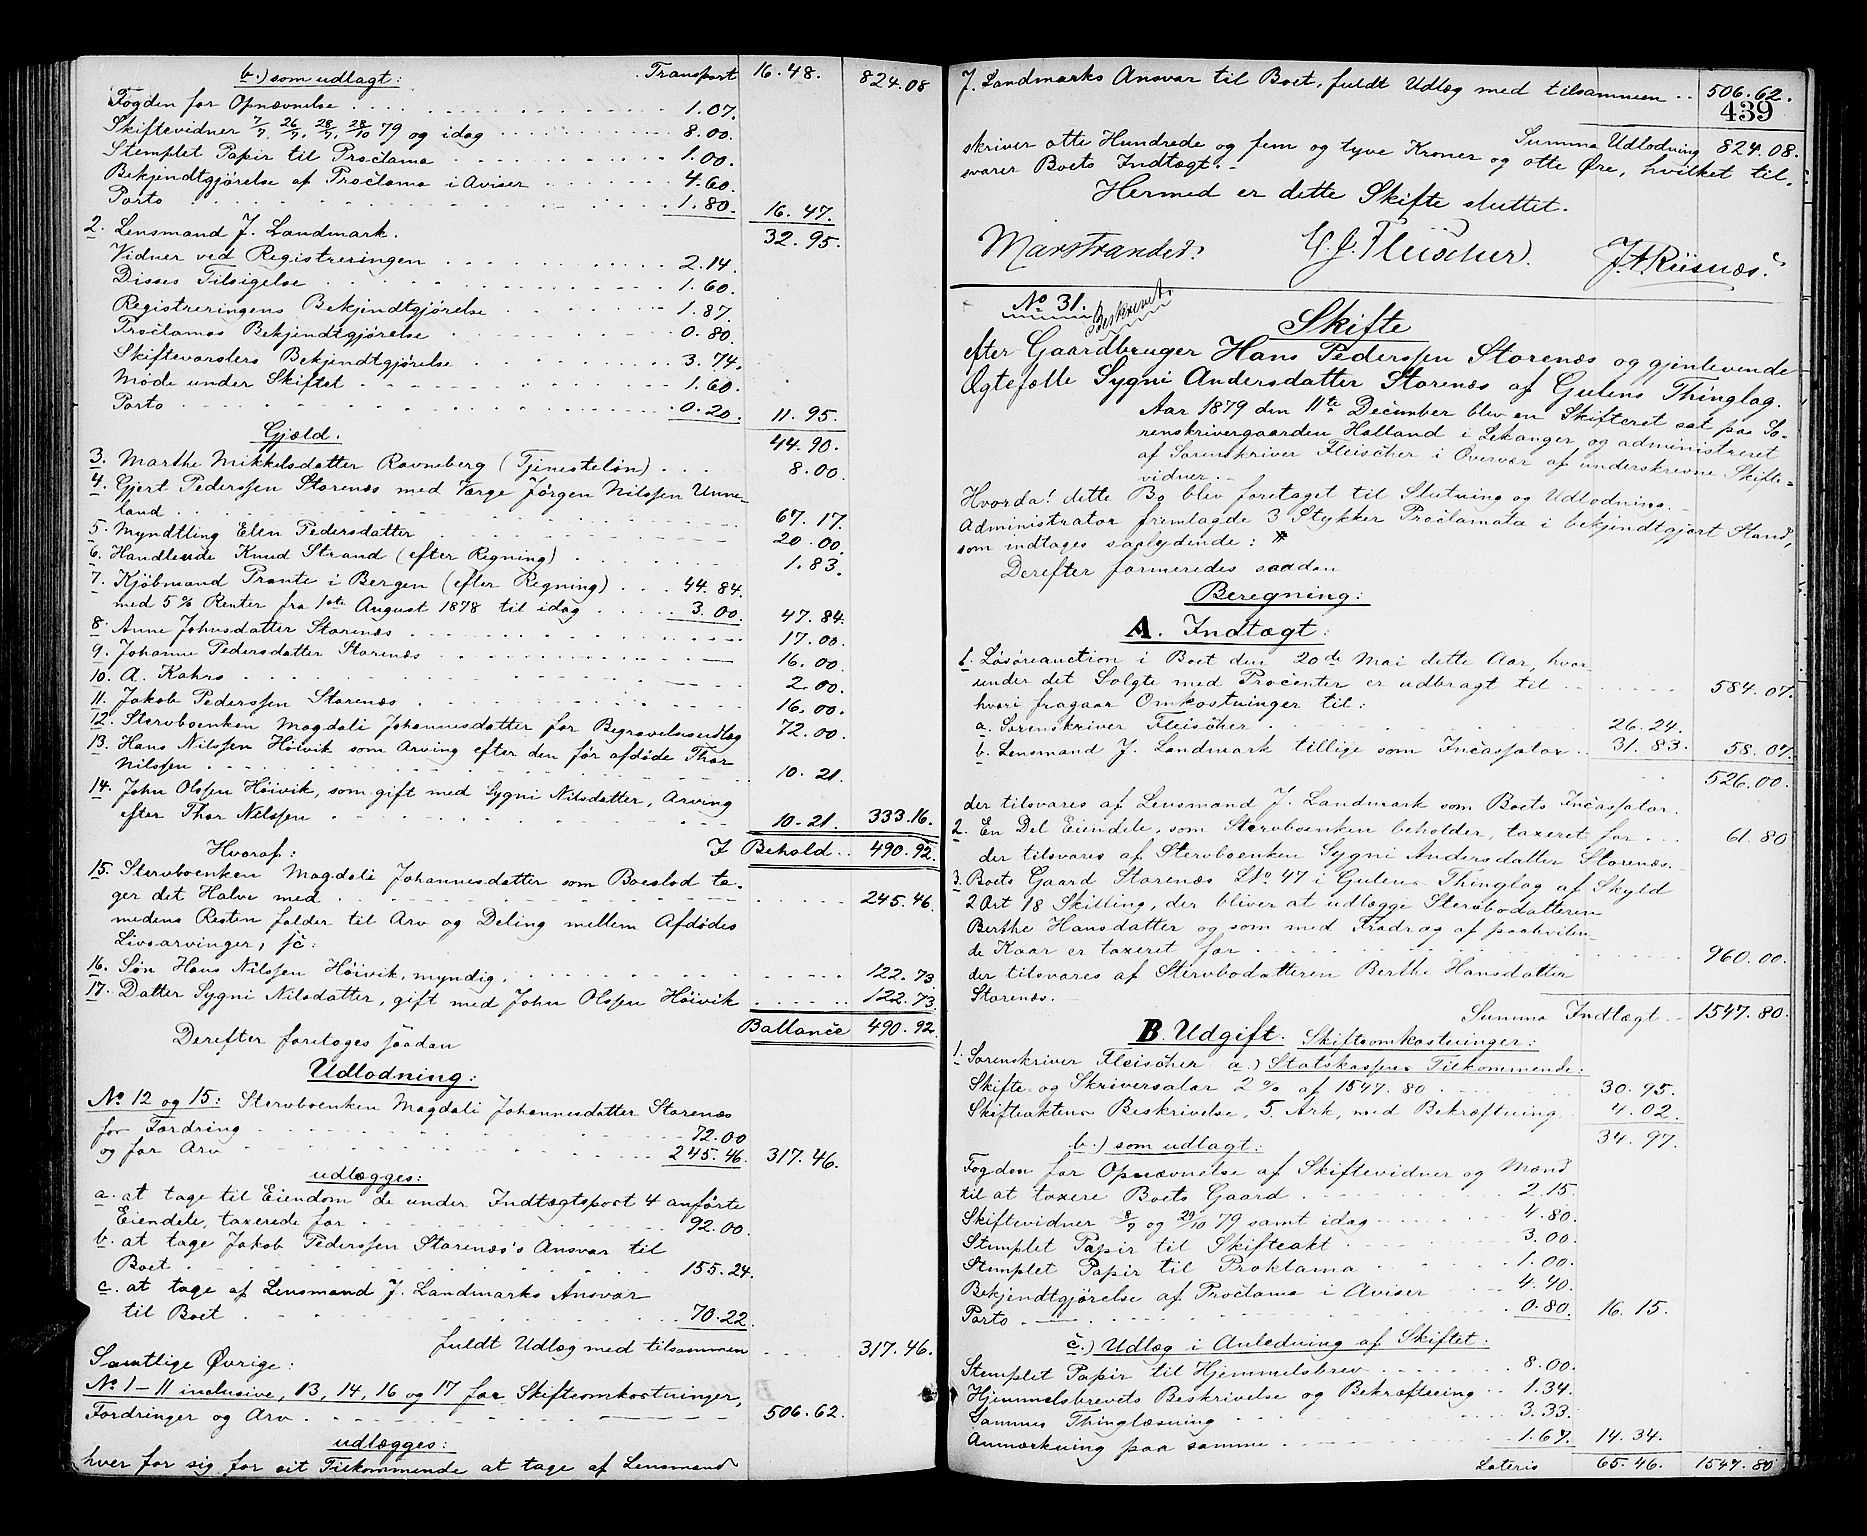 b.) som udlagt: . Transport 16.48. 824.08
Fogden for Opnævnelse . . . 1.07.
Skiftevidner 7/7, 26/7, 28/7, 28/10 79 og idag . . . 8.00.
Stemplet Papir til Proclama . . . 1.00.
Bekjendtgjørelse af Proclama i Aviser . . . 4.60.
Porto . . . 1.80. 16.47.
2. Lensmand J. Landmark. 32.95.
Vidner ved Registreringen . . . 2.14.
Disses Tilsigelse . . . 1.60.
Registreringens Bekjendtgjørelse . . . 1.87.
Proclamas Bekjendtgjørelse . . . 0.80.
Skiftevarslers Bekjendtgjørelse . . . 3.74.
Møde under Skiftet . . . 1.60.
Porto . . . 0.20. 11.95.
Gjæld. 44.90.
3. Marthe Mikkelsdatter Ravneberg (Tjenesteløn) . . . 8.00.
4. Gjert Pederssen Storenæs med Værge Jørgen Nilssen Unne-
land . . . 67.17.
5. Myndtling Elen Pedersdatter . . . 20.00.
6. Handlende Knud Strand (efter Regning) . . . 1.83.
7. Kjøbmand Trante i Bergen (efter Regning) . . . 44.84.
med 5% Renter fra 1ste August 1878 til idag . . . 3.00. 47.84.
8. Anne Johnsdatter Storenæs . . . 17.00.
9. Johanne Pedersdatter Storenæs . . . 16.00.
10. A. Kahrs . . . 2.00.
11. Jakob Pederssen Storenæs . . . 16.00.
12. Stervboenken Magdali Johannesdatter for Begravelsesudlæg 72.00.
13. Hans Nilssen Höivik som Arving efter den før afdøde Thor
Nilssen . . . 10.21.
14. John Olssen Höivik, som gift med Sygni Nilsdatter, Arving
efter Thor Nilssen . . . 10.21. 333.16.
Hvoraf: I Behold . . 490.92.
15. Stervboenken Magdali Johannesdatter som Boeslod ta-
ger det Halve med . . . 245.46.
medens Resten falder til Arv og Deling mellem Afdødes
Livsarvinger, sc:
16. Søn Hans Nilssen Höivik, myndig. . . . 122.73.
17. Datter Sygni Nilsdatter, gift med John Olssen Höivik . . . 122.73.
Ballance 490.92.
Derefter foretoges saadan
Udlodning:
No 12 og 15: Stervboenken Magdali Johannesdatter Storenæs
for Fordring . . . 72.00
og for Arv . . . 245.46. 317.46.
udlægges:
a. at tage til Eiendom de under Indtægtspost 4 anførte
Eiendele, taxerede for . . . 92.00.
b. at tage Jakob Pederssen Storenæs's Ansvar til
Boet . . . 155.24.
c. at tage af Lensmand J. Landmarks Ansvar
til Boet . . . 70.22.
fuldt Udlæg med tilsammen . . . 317.46.
Samtlige Øvrige:
No 1-11 inclusive, 13, 14, 16 og 17 for Skifteomkostninger,
Fordringer og Arv . . . 506.62.
udlægges:
hver for sig for sit Tilkommende at tage af Lensmand
J. Landmarks Ansvar til Boet, fuldt Udlæg med tilsammen . . 506.62.
439
Summa Udlodning 824.08.
skriver otte Hundrede og fem og tyve Kroner og otte Øre, hvilket til-
svarer Boets Indtægt.-
Hermed er dette Skifte sluttet.
Marstrander. C. J. Fleischer. J. A. Riisnæs.
No 31. Beskrevet.
Skifte
efter Gaardbruger Hans Pederssen Storenæs og gjenlevende
Ægtefælle Sygni Andersdatter Storenæs af Gulens Thinglag.
Aar 1879 den 11te December blev en Skifteret sat paa So-
renskrivergaarden Holland i Lekanger og administreret
af Sorenskriver Fleischer i Overvær af underskrevne Skifte-
vidner.-
Hvorda! dette Bo blev foretaget til Slutning og Udlodning.
Administrator fremlagde 3 Stykker Proclamata i bekjendtgjort Stand,
som indtages saalydende: #
Derefter formeredes saadan
Beregning:
A. Indtægt:
1. Løsøreauction i Boet den 20de Mai dette Aar, hvor-
under det Solgte med Procenter er udbragt til . . . 584.07.
hvori fragaar Omkostninger til:
a. Sorenskriver Fleischer . . . 26.24.
b. Lensmand J. Landmark tillige som Incassator . . 31.83. 58.07.
526.00.
der tilsvares af Lensmand J. Landmark som Boets Incassator.
2. En Del Eiendele, som Stervboenken beholder, taxeret for . . . 61.80
der tilsvares af Stervboenken Sygni Andersdatter Storenæs.-
3. Boets Gaard Storenæs LNo 47 i Gulens Thinglag af Skyld
2 Ort 18 Skilling, der bliver at udlægge Stervbodatteren
Berthe Hansdatter og som med Fradrag af paahvilen-
de Kaar er taxeret for . . . 960.00.
der tilsvares af Stervbodatteren Berthe Hansdatter
Storenæs.-
Summa Indtægt . . 1547.80.
B. Udgift. Skifteomkostninger:
1. Sorenskriver Fleischer a.) Statskassens Tilkommende:
Skifte- og Skriversalar 2% af 1547.80 . . . 30.95.
Skifteaktens Beskrivelse, 5 Ark, med Bekræftning . . 4.02.
b.) som udlagt: 34.97.
Fogden for Opnævnelse af Skiftevidner og Mænd
til at taxere Boets Gaard . . . 2.15.
Skiftevidner 8/7 og 29/10 79 samt idag . . . 4.80.
Stemplet Papir til Skifteakt . . . 3.00.
Stemplet Papir til Proklama . . . 1.00.
Bekjendtgjørelse af Proclama i Aviser . . . 4.40.
Porto . . . 0.80. 16.15.
c.) Udlæg i Anledning af Skiftet:
Stemplet Papir til Hjemmelsbrev . . . 8.00.
Hjemmelsbrevets Beskrivelse og Bekræftning . . 1.34.
Sammes Thinglæsning . . . 3.33.
Anmærkning paa samme . . . 1.67. 14.34.
Lateris 65.46. 1547.80